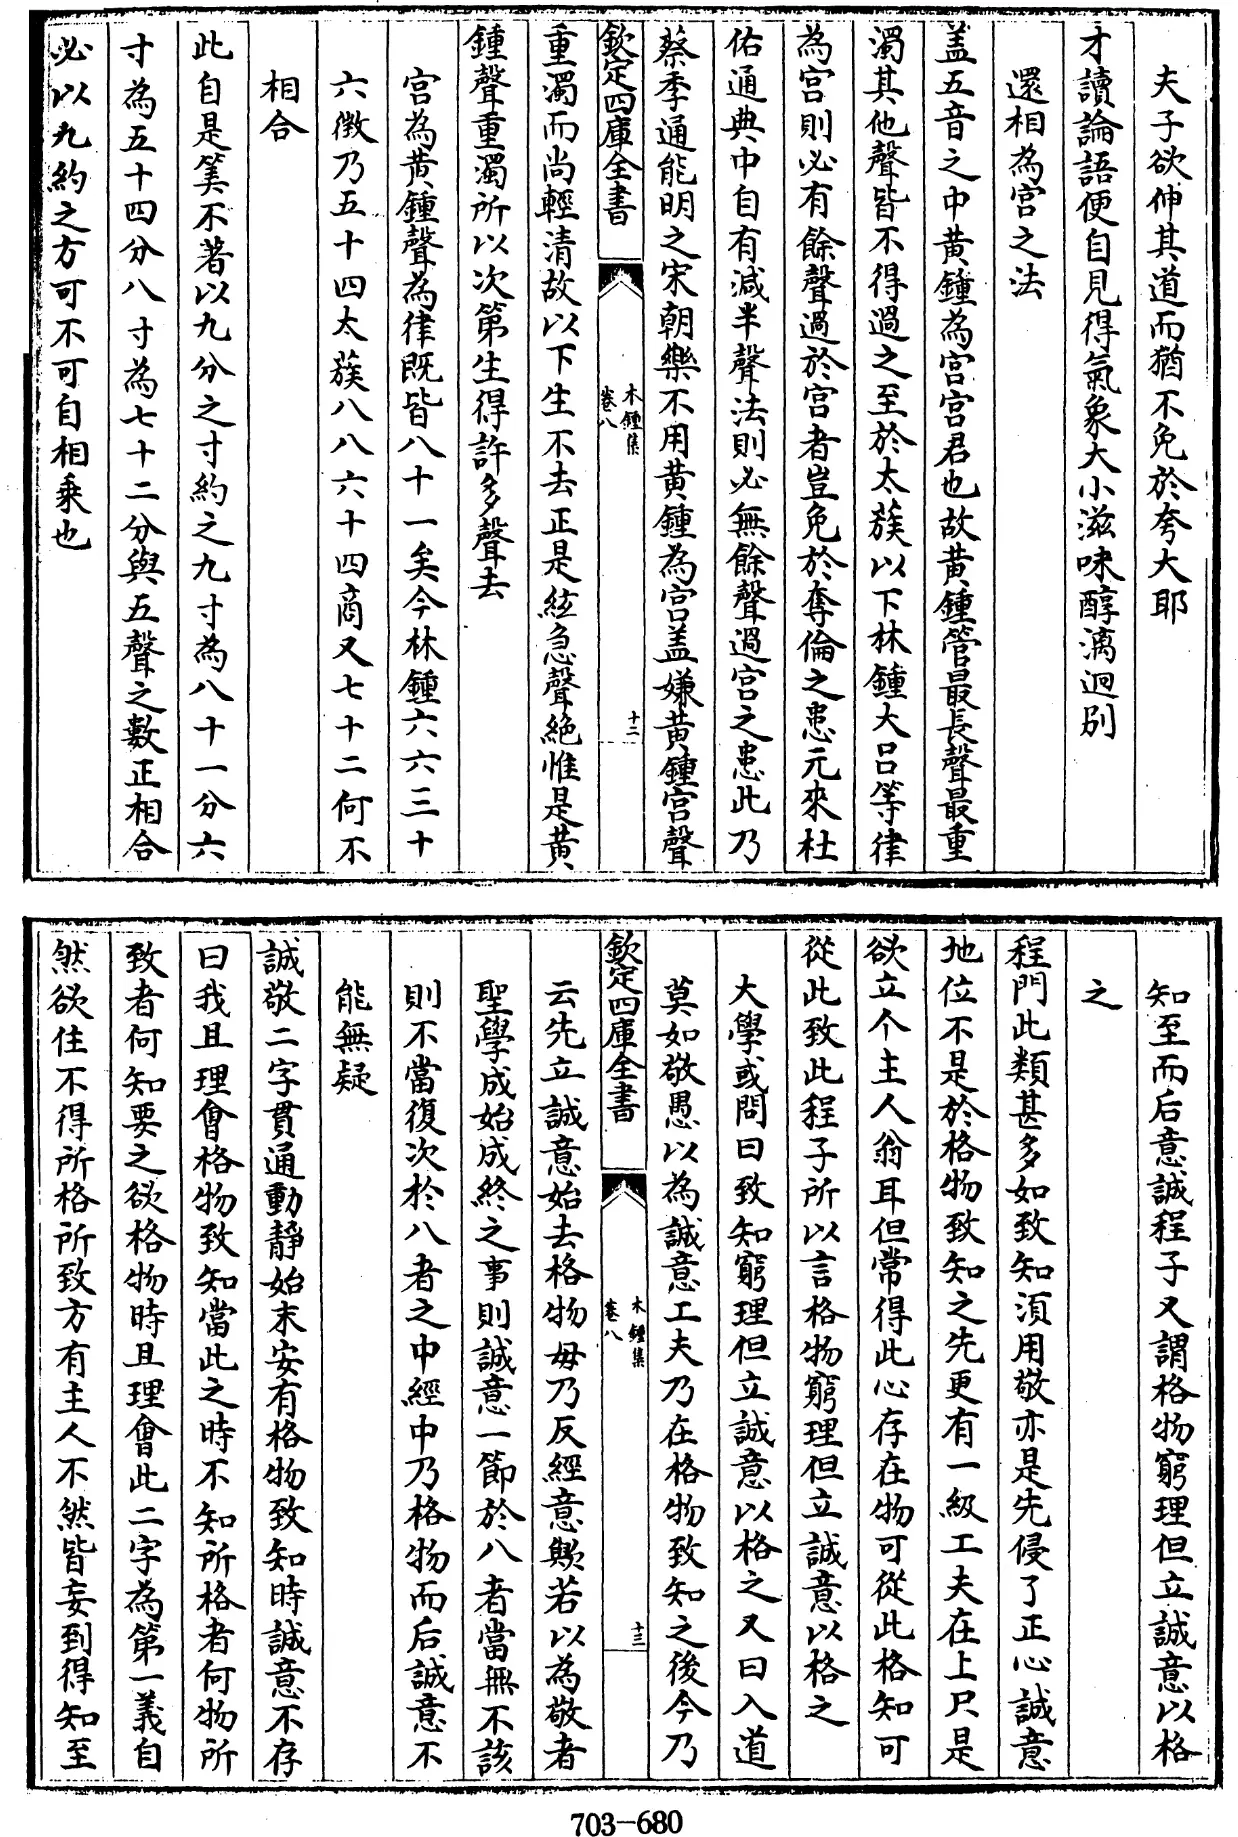 夫子欲伸其道而猶不免於夸大耶
才讀論語便自見得氣象大小滋味醇漓迥別
還相為宮之法
盖五音之中黄鍾為宮宮君也故黄鍾管最長聲最重
濁其他聲皆不得過之至於太蔟以下林鍾大吕等律
為宮則必有餘聲過於宮者豈免於奪倫之患元來杜
佑通典中自有減半聲法則必無餘聲過宮之患此乃
蔡季通能明之宋朝樂不用黄鍾為宮盖嫌黄鍾宮聲
欽定四庫全書
木鍾集
卷八
十二
重濁而尚輕清故以下生不去正是絃急聲絶惟是黄
鍾聲重濁所以次第生得許多聲去
宮為黄鍾聲為律既皆八十一矣今林鍾六六三十
六徴乃五十四太蔟八八六十四商又七十二何不
相合
此自是筭不著以九分之寸約之九寸為八十一分六
寸為五十四分八寸為七十二分與五聲之數正相合
必以九約之方可不可自相乘也
知至而后意誠程子又謂格物窮理但立誠意以格
之
程門此類甚多如致知須用敬亦是先侵了正心誠意
地位不是於格物致知之先更有一級工夫在上只是
欲立个主人翁耳但常得此心存在物可從此格知可
從此致此程子所以言格物窮理但立誠意以格之
大學或問曰致知窮理但立誠意以格之又曰入道
莫如敬愚以為誠意工夫乃在格物致知之後今乃
欽定四庫全書
木鍾集
卷八
十三
云先立誠意始去格物毋乃反經意歟若以為敬者
聖學成始成終之事則誠意一節於八者當無不該
則不當復次於八者之中經中乃格物而后誠意不
能無疑
誠敬二字貫通動靜始末安有格物致知時誠意不存
曰我且理會格物致知當此之時不知所格者何物所
致者何知要之欲格物時且理會此二字為第一義自
然欲住不得所格所致方有主人不然皆妄到得知至
703-680